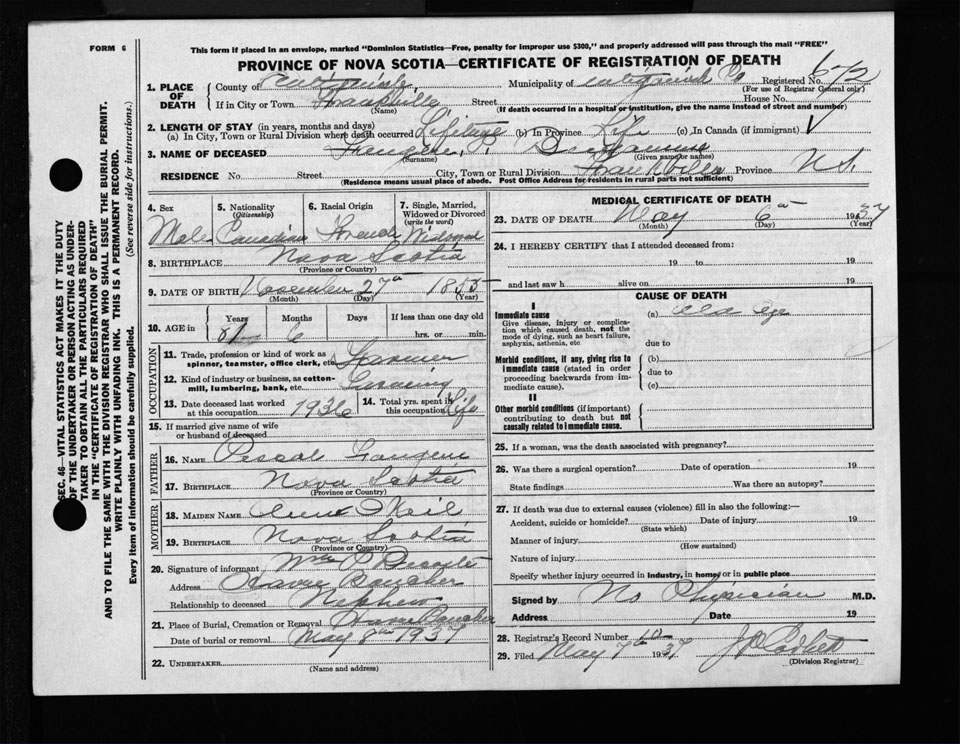 FORM 6
This form if placed in an envelope, marked "Dominion Statistics—Free, penalty for improper use $300," and properly addressed will pass through the mail "FREE"
PROVINCE OF NOVA SCOTIA—CERTIFICATE OF REGISTRATION OF DEATH
1. PLACE OF DEATH
County of Antigonish, Municipality of Antigonish Co Registered No. 672
(For use of Registrar General only)
If in City or Town Frankville, Street House No.
(Name) (If death occurred in a hospital or institution, give the name instead of street and number)
2. LENGTH OF STAY (in years, months and days)
(a) In City, Town or Rural Division where death occurred Lifetime (b) In Province Life (c) In Canada (if immigrant)
3. NAME OF DECEASED
(Surname) (Given name or names)
RESIDENCE No Street City, Town or Rural Division Frankville Province N.S.
(Residence means usual place of abode. Post Office Address for residents in rural parts not sufficient)
4. Sex
Male
5. Nationality (Citizenship)
Canadian
6. Racial Origin
French
7. Single, Married, Widowed or Divorced (write the word)
Widowed
8. BIRTHPLACE Nova Scotia
(Province or Country)
9. DATE OF BIRTH November 27th 1855
(Month) (Day) (Year)
10. AGE in Years Months Days If less than one day old
81 6 hrs. or min.
OCCUPATION
11. Trade, profession or kind of work as spinner, teamster, office clerk, etc. Farmer
12. Kind of industry or business, as cotton-mill, lumbering, bank, etc. Farming
13. Date deceased last worked at this occupation 1936
14. Total yrs. spent in this occupation Life
15. If married give name of wife or husband of deceased
FATHER
16. NAME
17. BIRTHPLACE Nova Scotia
(Province or Country)
MOTHER
18. MAIDEN NAME
19. BIRTHPLACE Nova Scotia
(Province or Country)
20. Signature of informant
Address Havre Boucher
Relationship to deceased Nephew
21. Place of Burial, Cremation or Removal Havre Boucher
Date of burial or removal May 8th 1937
22. UNDERTAKER
(Name and address)
MEDICAL CERTIFICATE OF DEATH
23. DATE OF DEATH May 6th 1937
(Month) (Day) (Year)
24. I HEREBY CERTIFY that I attended deceased from:
19 to 19
and last saw h alive on 19
CAUSE OF DEATH
I
Immediate cause
Give disease, injury or complication which caused death, not the mode of dying, such as heart failure, asphyxia, asthenia, etc
(a) Old Age
due to
Morbid conditions, if any, giving rise to immediate cause (stated in order proceeding backwards from immediate cause).
(b)
due to
(c)
II
Other morbid conditions (if important) contributing to death but not causally related to immediate cause.
25. If a woman, was the death associated with pregnancy?
26. Was there a surgical operation? Date of operation 19
State findings Was there an autopsy?
27. If death was due to external causes (violence) fill in also the following:—
Accident, suicide or homicide? Date of injury 19
(State which)
Manner of injury
(How sustained)
Nature of injury
Specify whether injury occurred in industry, in home, or in public place
Signed by No Physician M.D.
Address Date 19
28. Registrar's Record Number 10
29. Filed May 7th 1937
(Division Registrar)
SEC. 46—VITAL STATISTICS ACT MAKES IT THE DUTY
OF THE UNDERTAKER OR PERSON ACTING AS UNDER-
TAKER TO OBTAIN ALL THE PARTICULARS REQUIRED
IN THE "CERTIFICATE OF REGISTRATION OF DEATH"
AND TO FILE THE SAME WITH THE DIVISION REGISTRAR WHO SHALL ISSUE THE BURIAL PERMIT.
WRITE PLAINLY WITH UNFADING INK. THIS IS A PERMANENT RECORD.
Every item of information should be carefully supplied. (See reverse side for instructions.)